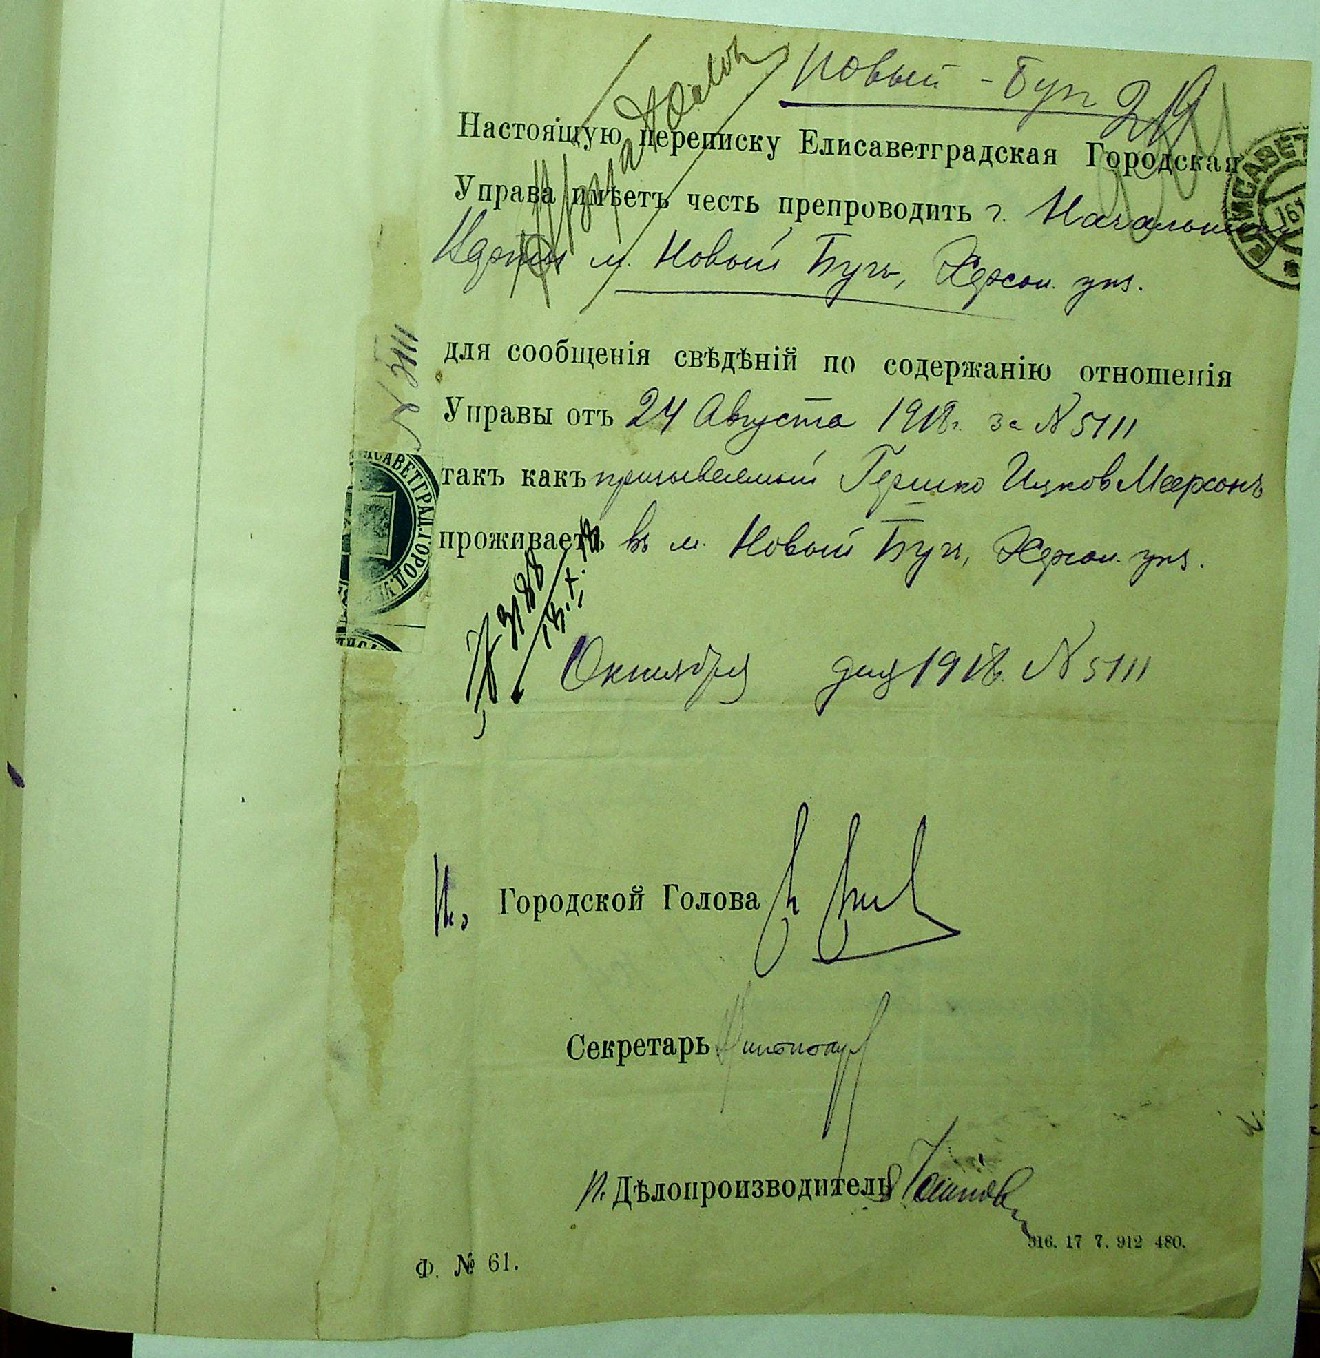 Новый - Буг
29
Настоящую переписку Елисаветградская Городская
Управа имѣетъ честь препроводить г. Начальн
м. Новый Бугъ, Херсон. уѣз.
для сообщенія свѣдѣній по содержанію отношенія
Управы отъ 24 Августа 1918г. за № 5111
такъ какъ призываемый Гершко Ицков Меерсонъ
проживаетъ въ м. Новый Бугъ, Херсон. уѣз.
№ 3188
13.X.18
Октября дня 1918г. № 5111
№ 5111
ИСАВЕТГРАД. ГОРОД.
ЕЛИСАВЕТ
16
И. Городской Голова
Секретарь
И. Дѣлопроизводитель
Ф. № 61.
916. 17 7. 912 480.